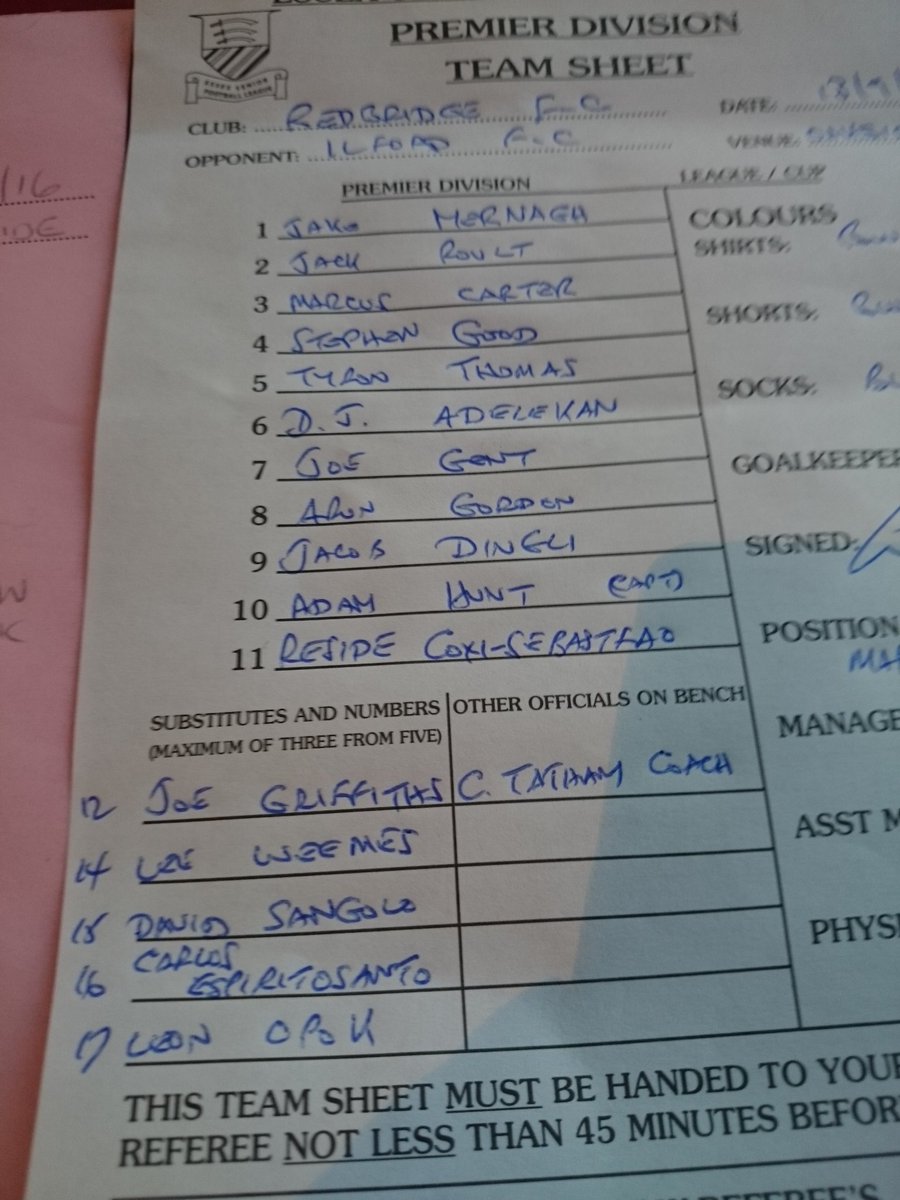 PREMIER DIVISION
TEAM SHEET
ESSEX SENIOR
FOOTBALL LEAGUE
CLUB: REDBRIDGE F.C
DATE:
OPPONENT: ILFORD F.C
VENUE:
/16
PREMIER DIVISION
LEAGUE / CUP
1 JAKE HERNAGH
COLOURS
2 JACK ROULT
SHIRTS:
3 MARCUS CARTER
SHORTS:
4 STEPHEN GOOD
5 TYRON THOMAS
SOCKS:
6 D.J. ADELEKAN
7 JOE GENT
GOALKEEPER
8 ARON GORDON
9 JACOB DINGLI
SIGNED:
10 ADAM HUNT (CAPT)
11 RESIDE COXI-SEBASTIAO
POSITION
MA
SUBSTITUTES AND NUMBERS
(MAXIMUM OF THREE FROM FIVE)
OTHER OFFICIALS ON BENCH
MANAGE
12 JOE GRIFFITHS C. TATHAM COACH
ASST M
14 LEE WEEMES
15 DAVID SANGOLO
PHYSI
16 CARLOS
ESPIRITOSANTO
17 LEON OPOK
THIS TEAM SHEET MUST BE HANDED TO YOUR
REFEREE NOT LESS THAN 45 MINUTES BEFOR
REFEREE'S